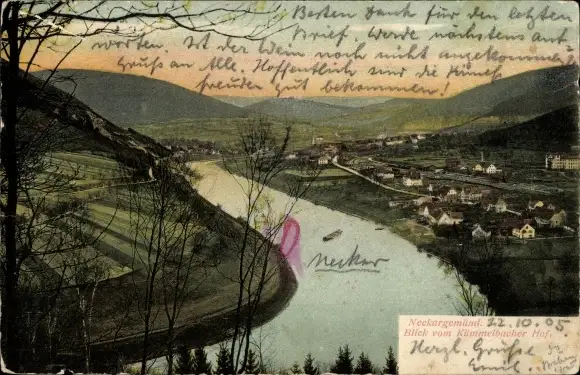 Besten Dank für den letzten
Brief. Werde nächstens ant
worten. Ist der Wein noch nicht angekommen?
Gruß an Alle. Hoffentlich sind die
freuden gut bekommen!
Neckar
Neckargemünd. 22.10.05
Blick vom Kümmelbacher Hof.
Herzl. Grüße
Emil.